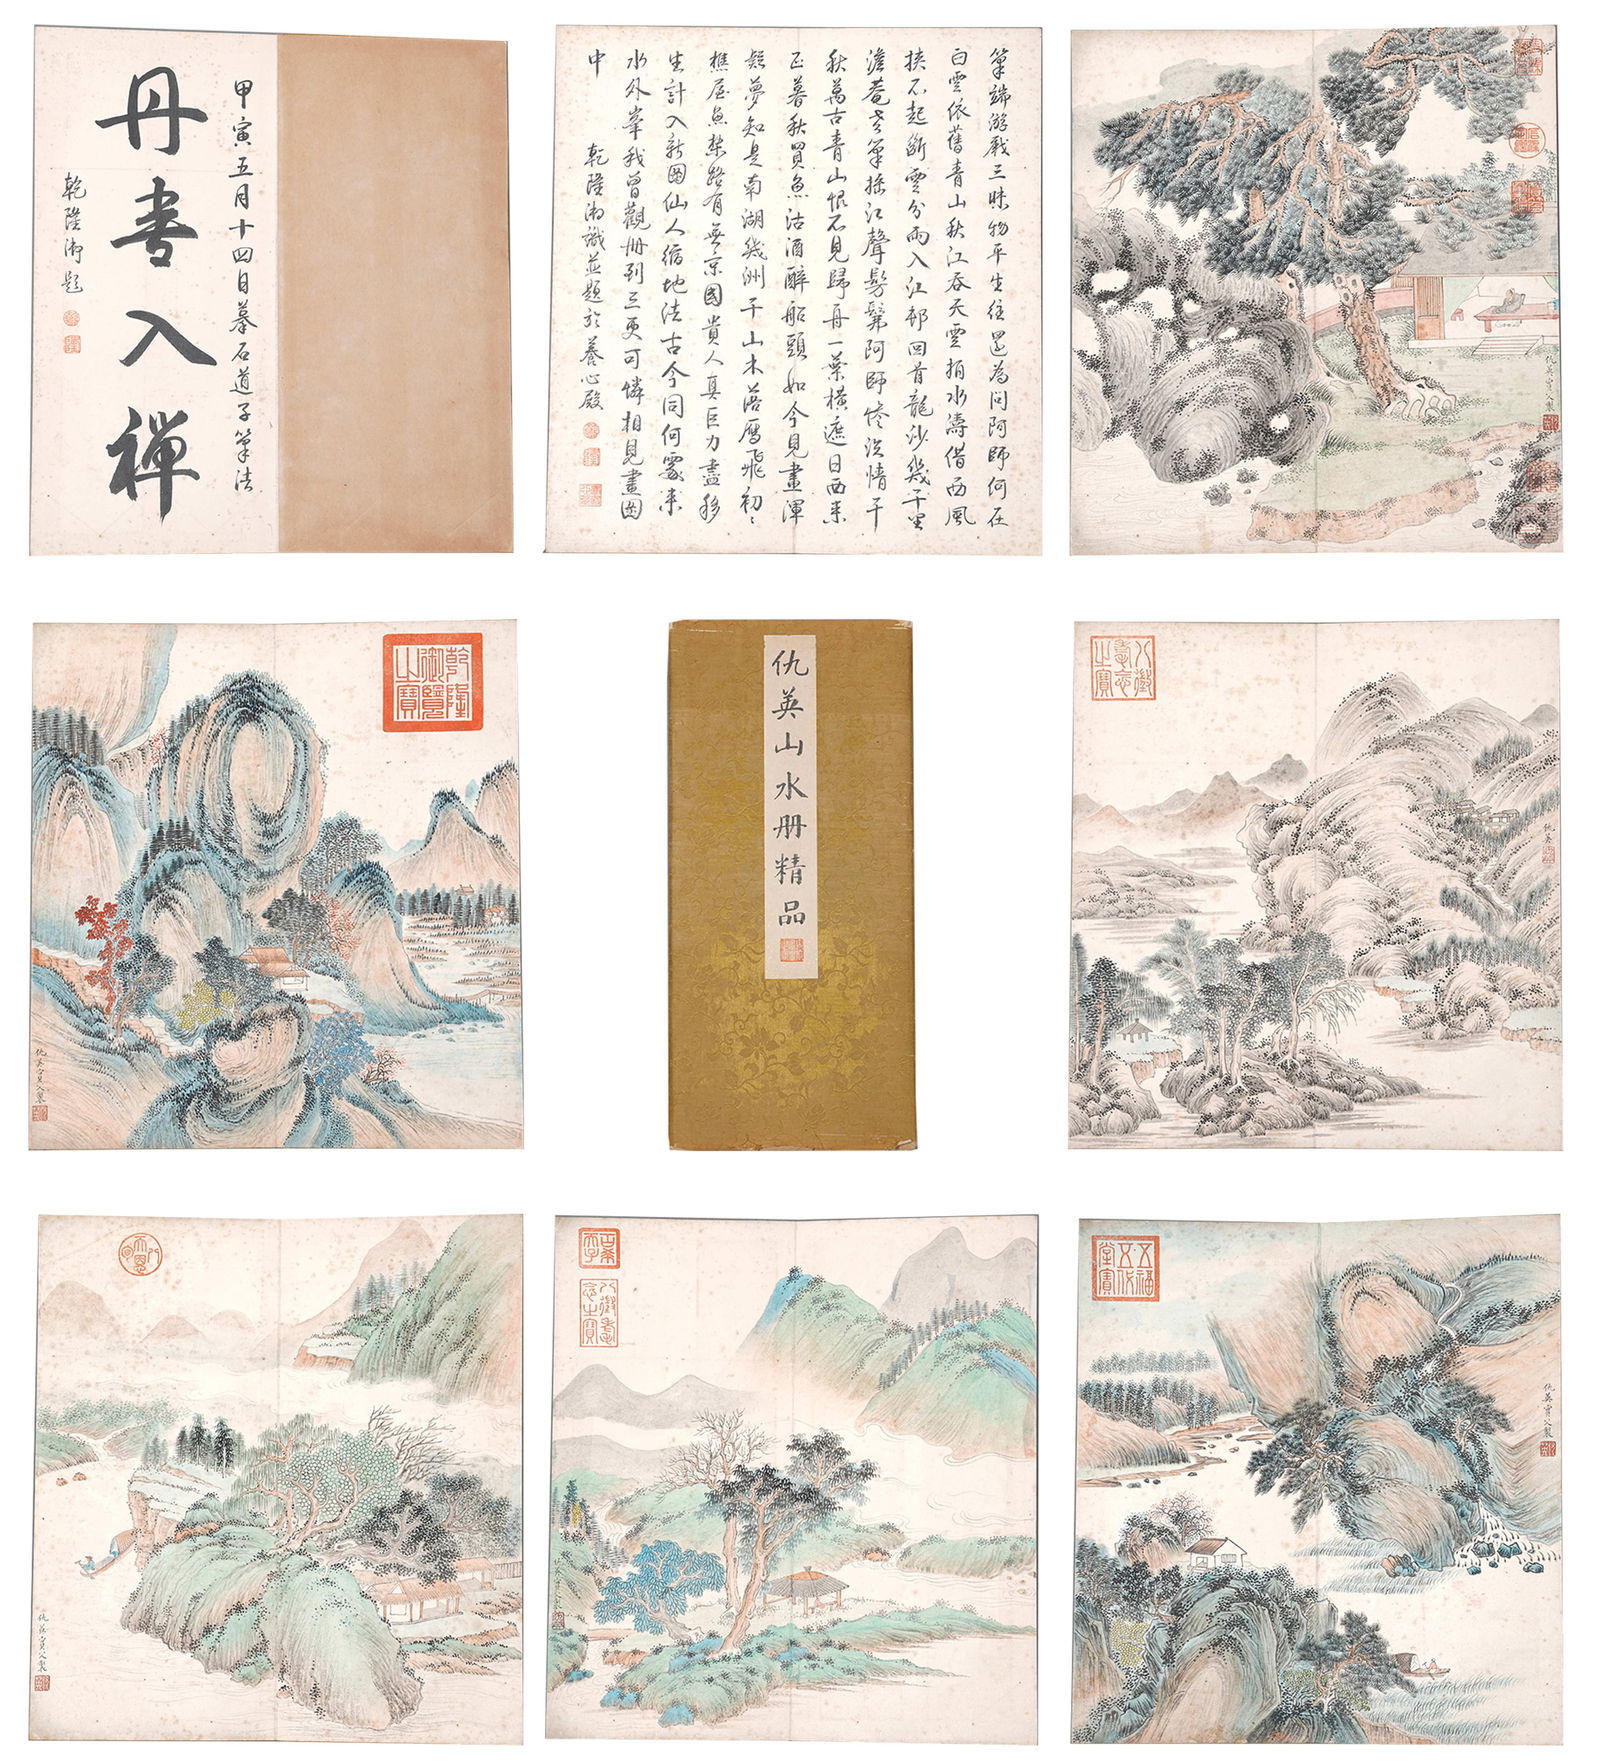 甲寅五月十四日摹石道子筆法
丹書入禪
乾隆御题
筆端游戲三昧物平生往還為問阿師何在
白雲依舊青山秋江吞天雲拍水濤借西風
挟不起斷雲分雨入江邨回首龍沙幾千里
澹菴老筆搖江聲髣髴阿師慘淡情千
秋萬古青山恨不見歸舟一葉橫遮日西来
正暮秋買魚沽酒醉船頭如今見畫渾
疑夢知是南湖幾洲千山木落雁飛初
樵屋魚梁路有無京國貴人真巨力盡移
生計入新圖仙人縮地法古今同何處来
水外峯我曾觀册到三更可憐相見畫圖
中
乾隆御識並題於養心殿
仇英實父製
乾隆御覽之寶
仇英實父製
仇英山水册精品
八徵耄念之寶
仇英
仇英實父製
古希天子
八徵耄念之寶
五福五代堂寶
仇英實父製